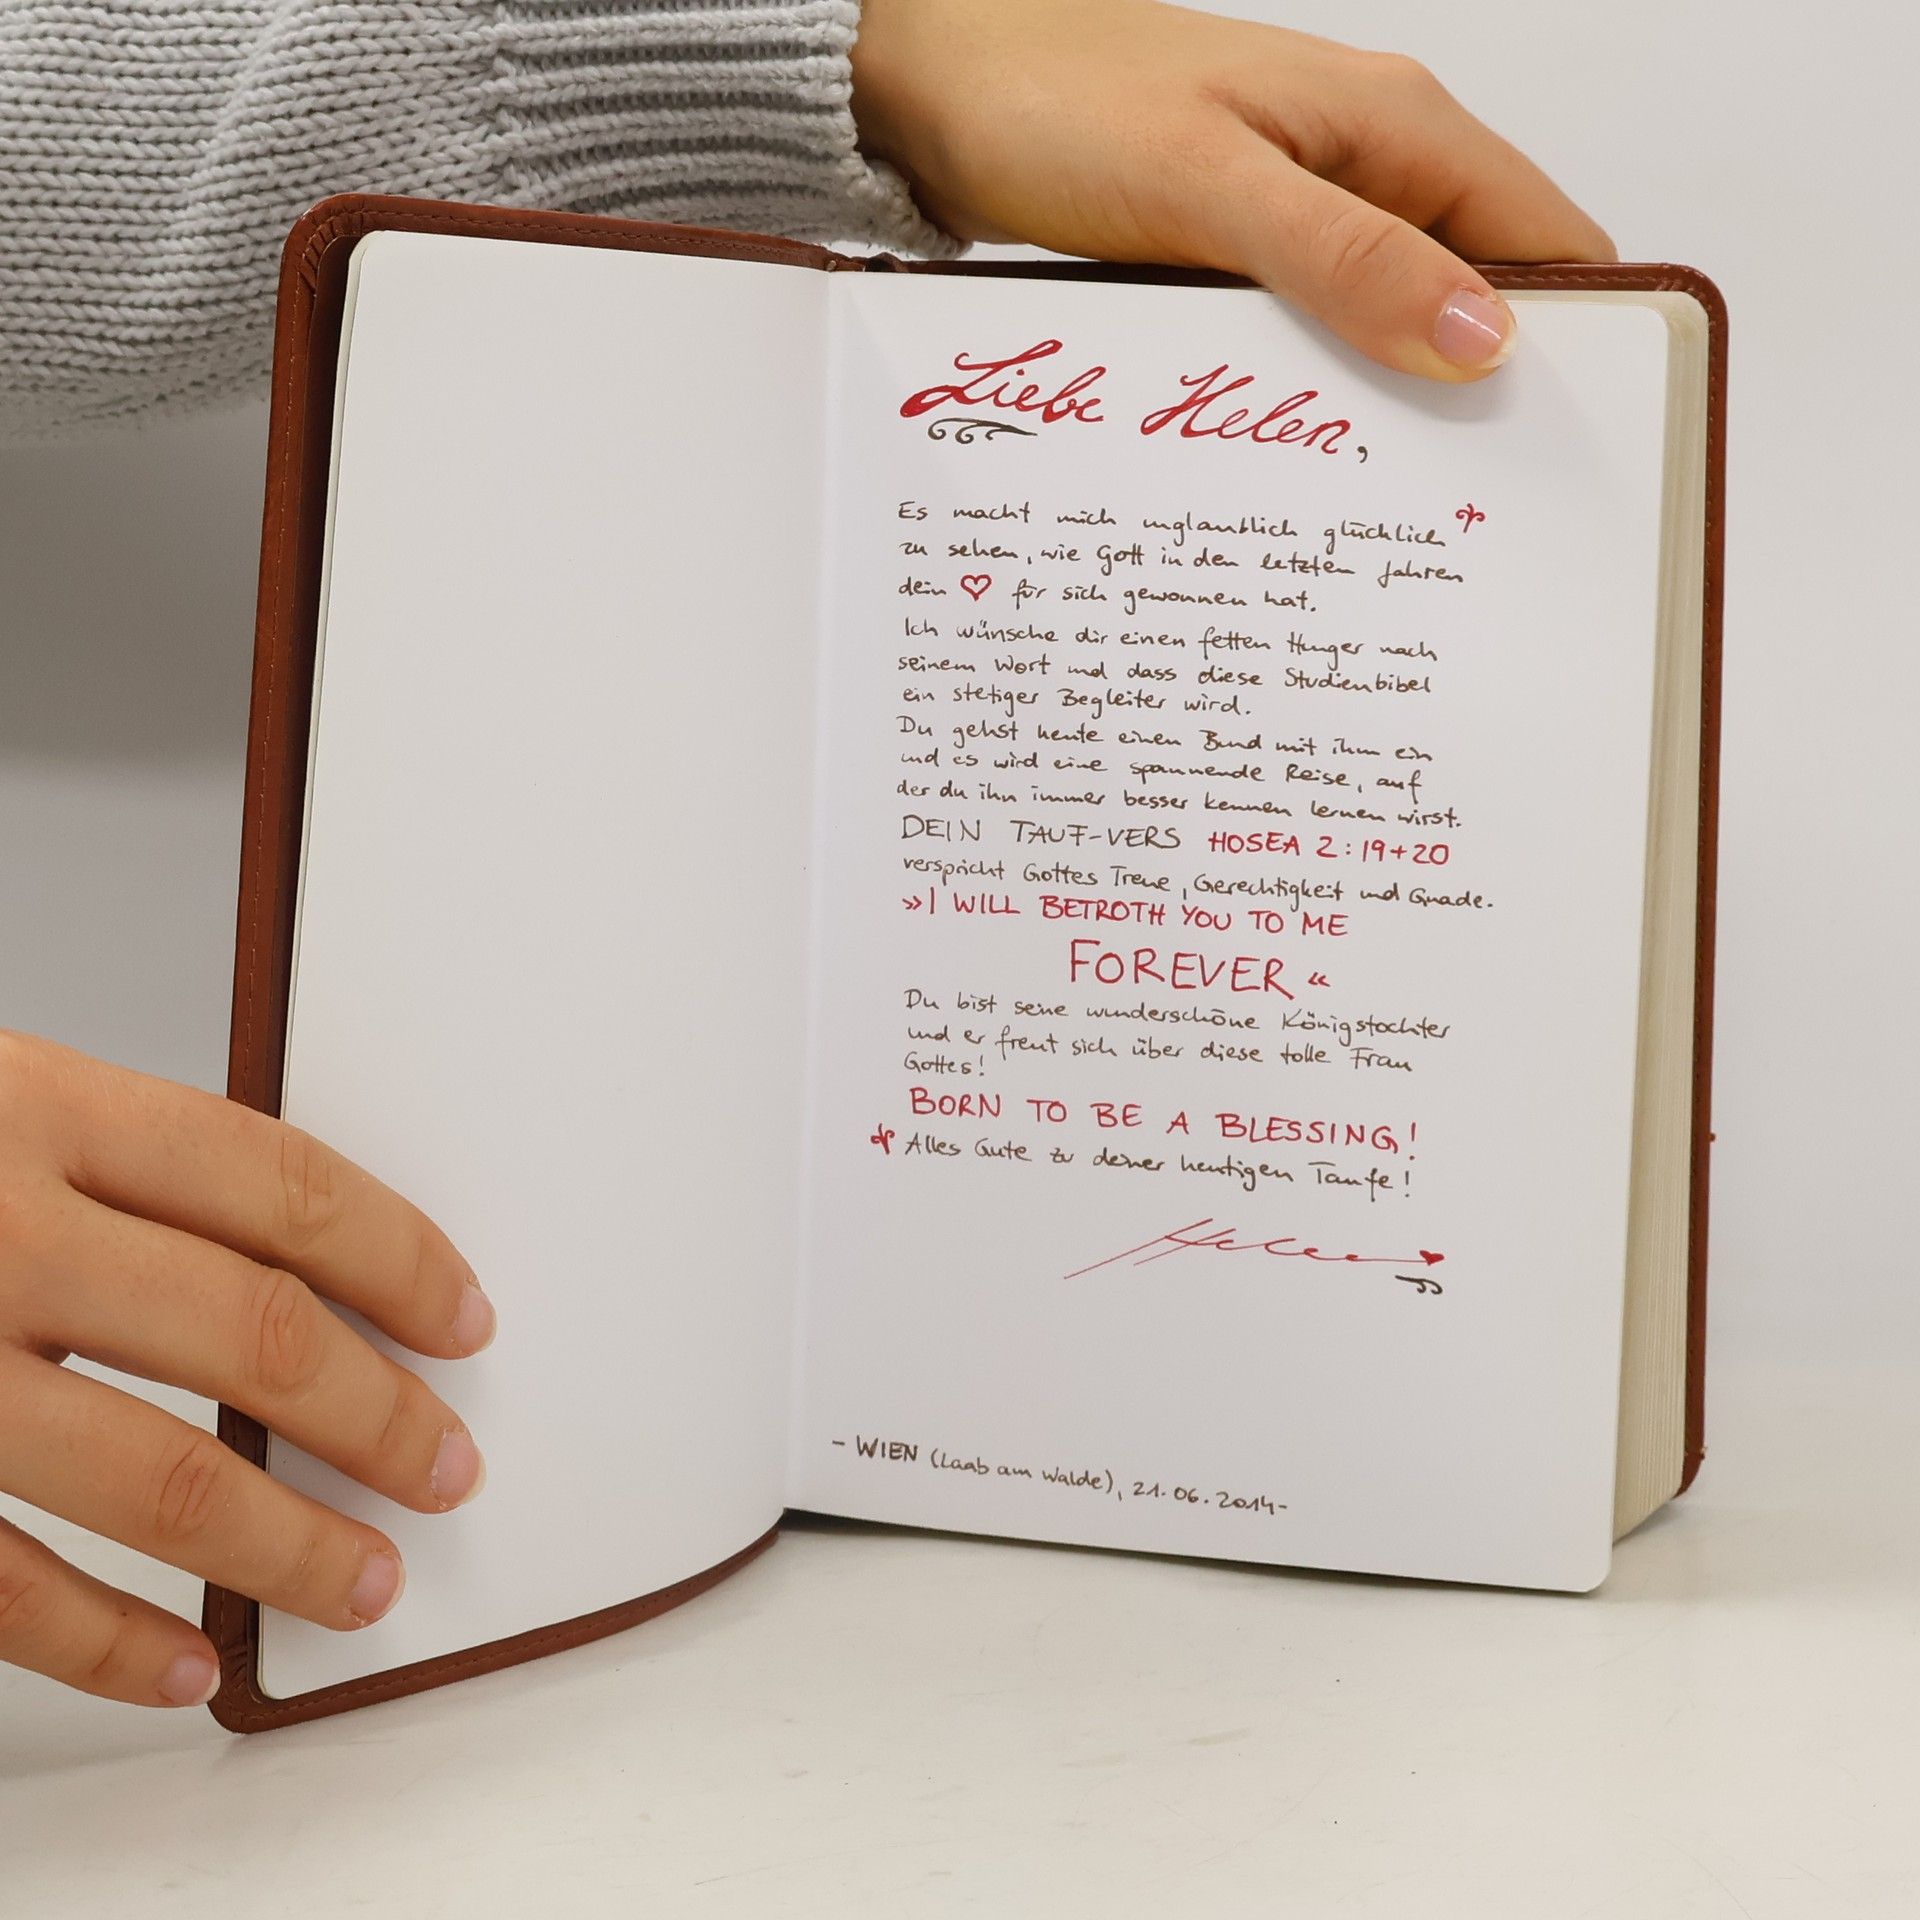 Liebe Helen,
Es macht mich unglaublich glücklich
zu sehen, wie Gott in den letzten Jahren
dein ♡ für sich gewonnen hat.
Ich wünsche dir einen fetten Hunger nach
seinem Wort und dass diese Studienbibel
ein stetiger Begleiter wird.
Du gehst heute einen Bund mit ihm ein
und es wird eine spannende Reise, auf
der du ihn immer besser kennen lernen wirst.
DEIN TAUF-VERS HOSEA 2:19+20
verspricht Gottes Treue, Gerechtigkeit und Gnade.
»I WILL BETROTH YOU TO ME
FOREVER«
Du bist seine wunderschöne Königstochter
und er freut sich über diese tolle Frau
Gottes!
BORN TO BE A BLESSING!
Alles Gute zu deiner heutigen Taufe!
Helen
- WIEN (Laab am Walde), 21.06.2014-